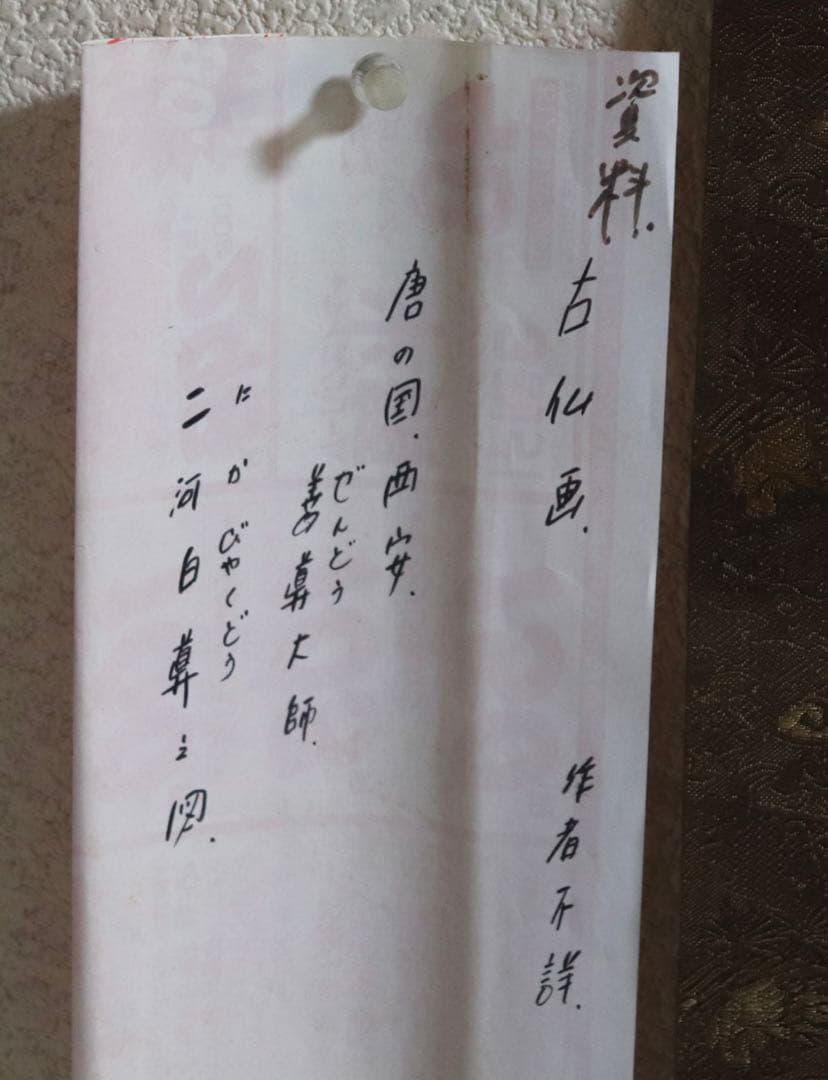 資料.
古仏画.
作者不詳.
唐の国.西安.
ぜんどう
善導大師.
にかびゃくどう
二河白導之図.